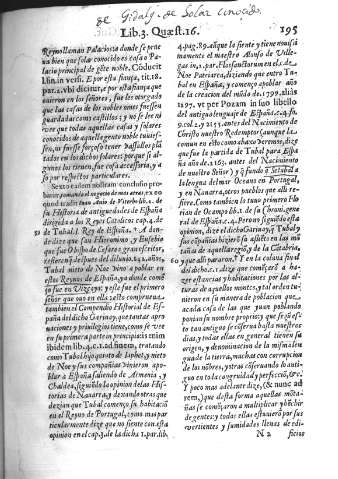 de Hidalg. de Solar conocido.
Lib. 3. Quæst. 16. 195
Reyno llaman Palacios a donde se prue
ua bien que solar conocido es casa o Pa
lacio principal de gēte noble. Cōducit
l. sin. in versi. E por esta fiança, tit. 18.
par. 2. vbi dicitur,
uieron en los señores, fue les otorgado
que las casas de los nobles omes fuessen
guardadas como castillos; y no se lee ni
vee que todas aquellas casas y solares
conocidos de aquella gente noble tuuies-
sen, ni fuesse forçoso tener vassallos plā
tados en los dichos solares; porque si al-
gunos los tienen, fue cosa accessoria, y
por respectos particulares.
Sexto eadem nostram conclusio pro-
quod tradit Iuan Anio de Viterbo lib. 1. de
su Historia de antiguedades de España
dirigida a los Reyes Catolicos cap. 4. de
51 de Tubal. 1. Rey de España. A don-
de dize que san Hieronimo, y Eusebio
que fue Obispo de Cesarea,
que despues del diluuio. 142. años,
Tubal nieto de Noe vino a poblar en
estos Reynos de España, y a donde como
ço fue en Vizcaya: y este fue el primero
señor que ouo en ella: esto comprueua
tambien el Compendio Historial de Es-
paña del dicho Garinay, que tratar apro-
uaciones y priuilegios tiene, como se vee
en su primera parte in principatis: mira
ibidem lib. 4. c. 1. ad finem, tratando
como Tubal hijo quinto de Iaphet, y nieto
de Noe y sus compañias vinieron a po-
blar a España saliendo de Armenia, y
Chaldea, siguiēdo la opinion de las His-
torias de Nauarra, y dexando otras que
dezian que Tubal començo su habitaciō
en el Reyno de Portugal, como mas par
ticularmente dize que no siente con esta
opinion en el cap. 3. de la dicha 1. par. lib.
4. pag. 89. aũque lo siente y tiene muy si
niamente el maestro Alonso de Ville-
gas in. 2. par. Flos sanctorum en el c. de
Noe Patriarca, diziendo que entro Tu-
bal en España, y començo a poblarla año
de la creacion del mũdo de. 1799. alias
1797. vt per Pozam in suo libello
del antiguo lenguaje de España. c. 4. fo.
9. col. 2. y 2153. antes del Nacimiento de
Christo nuestro Redemptor (aunque la
comun es esto como abaxo veremos, dize
que fue la partida de Tubal para Espa
ña año de. 2163. antes del Nacimiento
de nuestro Señor) y q̃ fundò à Setubala
la lengua del mar Oceano en Portugal,
y en Nauarra, otros pueblos que alli re-
fiere. Como tambien lo tuuo primero Flo
rian de Ocampo lib. 1. de su Chroni. gene-
ral de España. c. 4. Pero en siguiendo esta
opinion, dize el dicho Garinay, q̃ Tubal y
sus compañias hizieron su assiento en las mō
tañas de aquella regiō, y de la Cātabria,
60 y que alli pararon. Y en la coluna siguiē
del dicho. c. 1. dize que començarō a ha-
zer estancias y habitaciones por las al-
turas de aquellos montes, y tal orden tu-
uieron en su manera de poblacion que,
a cada casa de las que yuan poblando
ponian su nombre proprio; y que se q̃ es
to tan antiguo se conserua hasta nuestros
dias, y todas ellas en general tienen su
origen, y denominacion de la misma len
gua de la tierra, muchas con corrupcion
de los nōbres, y otras cōseruando lo antiguo
en toda congruydad y perfeciō, &c.
Y poco mas adelante dize, (& nunc ad
rem), que desta forma aquellas mota-
ñas se començaron a multiplicar y hīchir
de gente: y todas ellas estauan por sus
vertientes y sumidades llenas de edi-
N 2 ficios